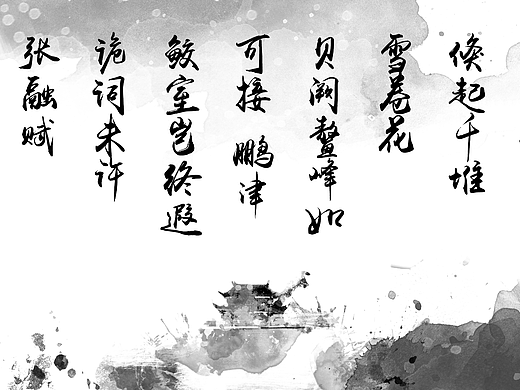 倏起千堆
雪卷花
贝阙鳌峰如
可接 鹏津
鲛室岂终遐
诡词未许
张融赋